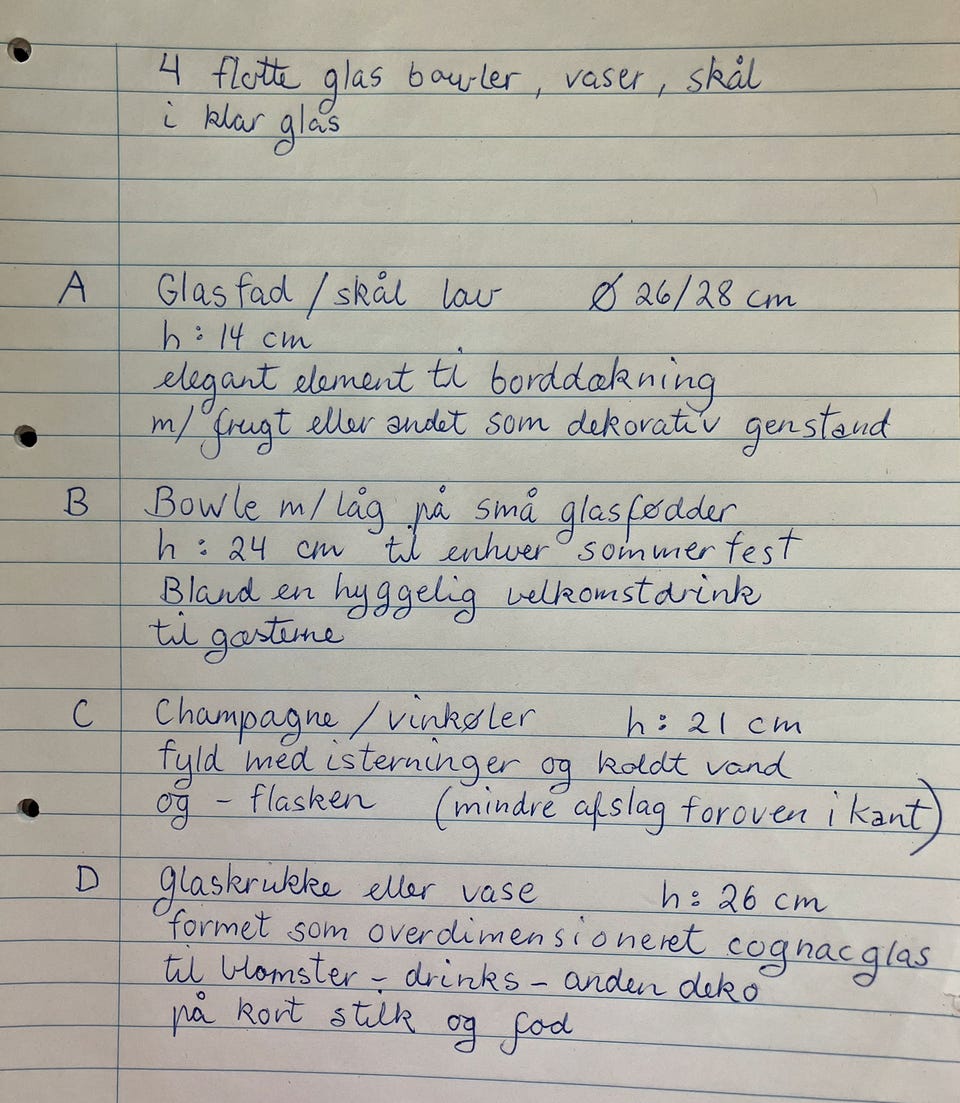 4 flotte glas bowler, vaser, skål
i klar glas
A Glasfad / skål lav Ø 26/28 cm
h: 14 cm
elegant element til borddækning
m/ frugt eller andet som dekorativ genstand
B Bowle m/ låg på små glasfødder
h: 24 cm til enhver sommerfest
Bland en hyggelig velkomstdrink
til gæsterne
C Champagne / vinkøler h: 21 cm
fyld med isterninger og koldt vand
og - flasken (mindre afslag foroven i kant)
D Glaskrukke eller vase h: 26 cm
formet som overdimensioneret cognacglas
til blomster - drinks - anden deko
på kort stilk og fod